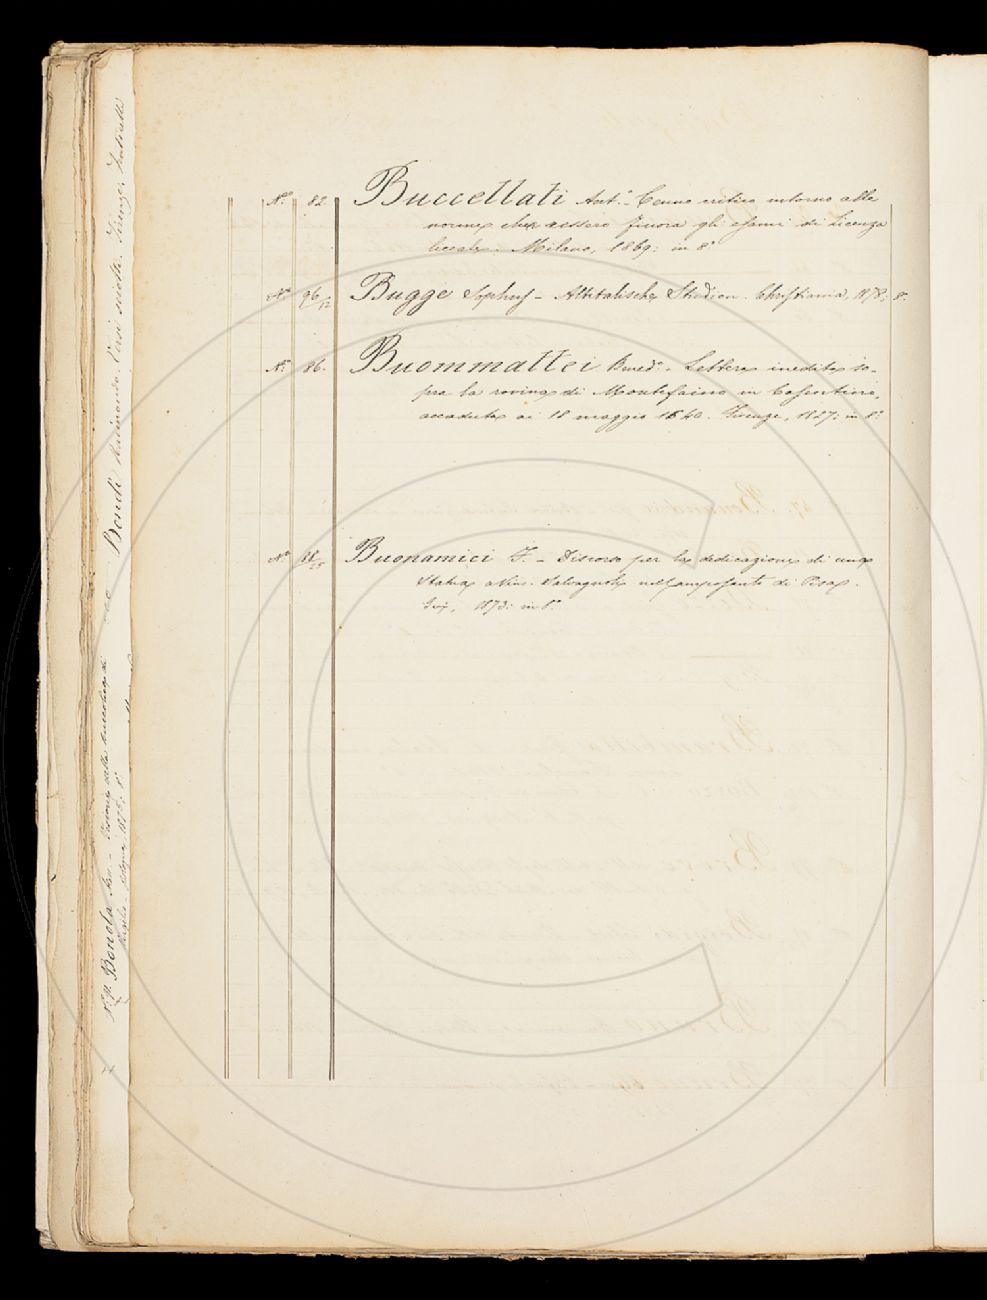 N.° 82. Buccellati Ant.° - Cenno critico intorno alle
norme che ressero finora gli esami di Licenza
liceale. Milano, 1869: in 8°
N.° 96/12 Bugge Sophus - Altitalische Studien. Christiania, 1878; 8°.
N.° 86. Buommattei Bened.° - Lettera inedita so-
pra la rovina di Montefaino in Casentino,
accaduta ai 18 maggio 1640. Firenze, 1827: in 8°.
N.° Buonamici F. - Discorso per la dedicazione di una
statua a Vinc. Salvagnoli nel Camposanto di Pisa.
Ivi, 1873: in 8°.
Bondi Versi sciolti. Firenze,
N.° Bonola - Versione dalla buccolica di
Virgilio - Bologna, 1875; 8°